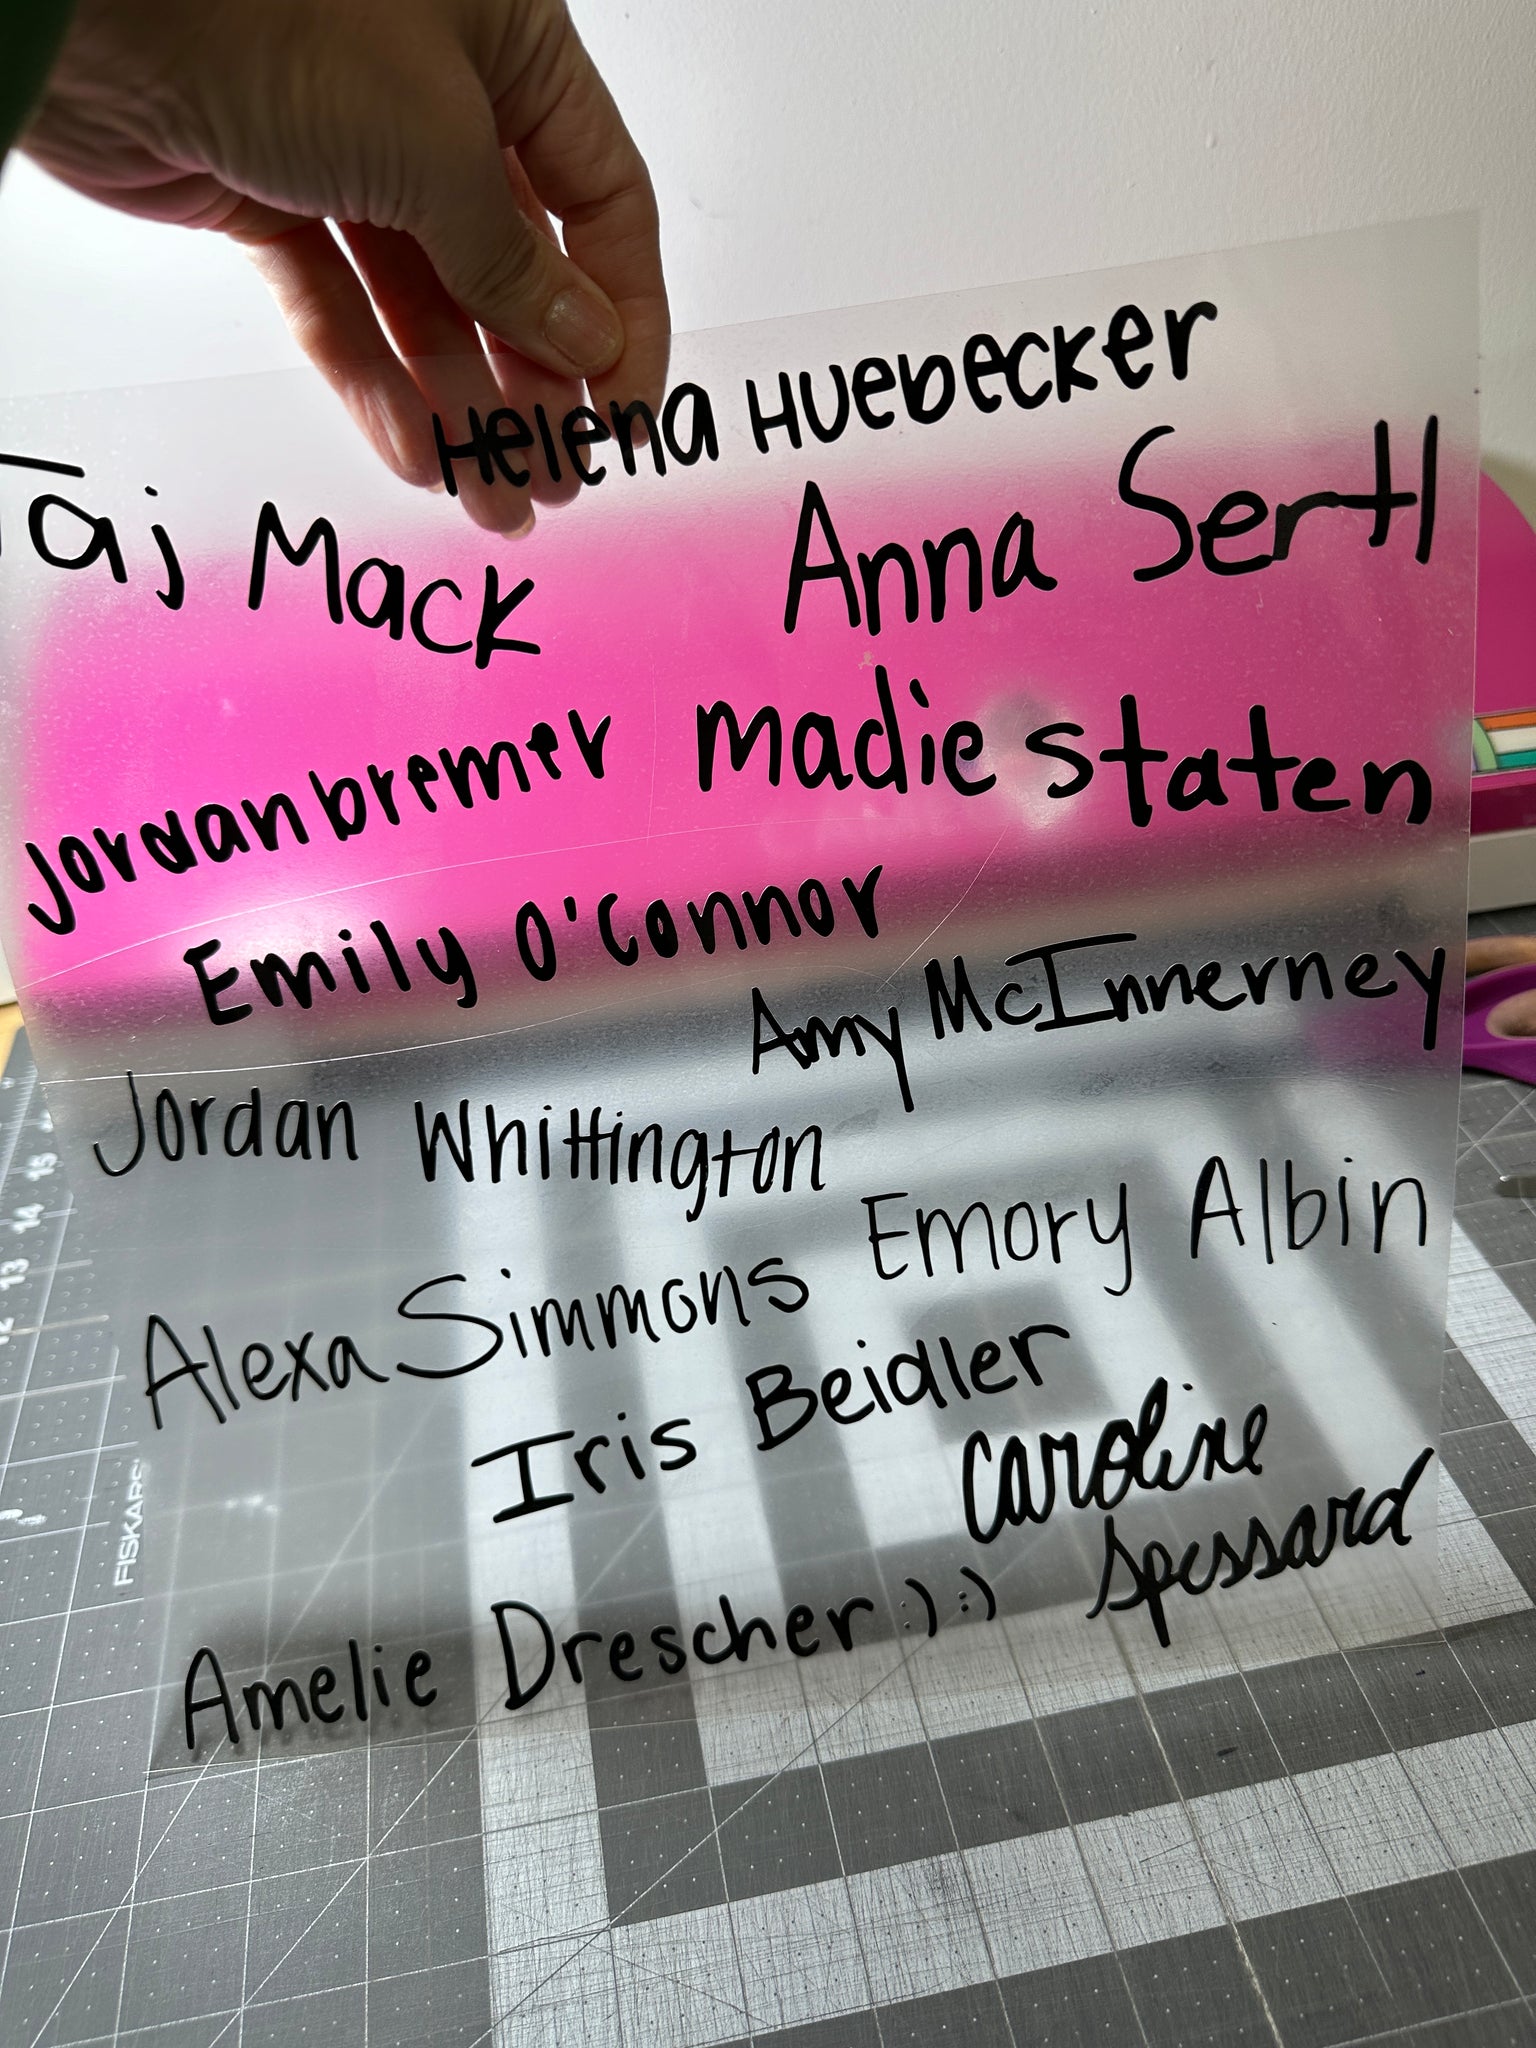 Helena Huebecker
Taj Mack
Anna Sertl
Jordan bremer
madie staten
Emily O'Connor
Amy McInnerney
Jordan Whittington
Emory Albin
Alexa Simmons
Iris Beidler
Caroline
Spessard
Amelie Drescher :) :)
FISKARS
15
14
13
12